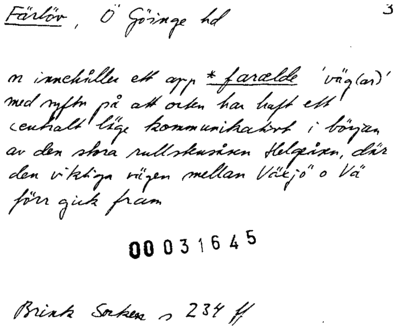 Färlöv, Ö Göinge hd
3
n innehåller ett app *farælde 'väg(ar)'
med syftn på att orten har haft ett
centralt läge kommunikativt i början
av den stora rullstensåsen Helgeåsen, där
den viktiga vägen mellan Växjö o Vä
förr gick fram
00031645
Brink Socken s 234 ff